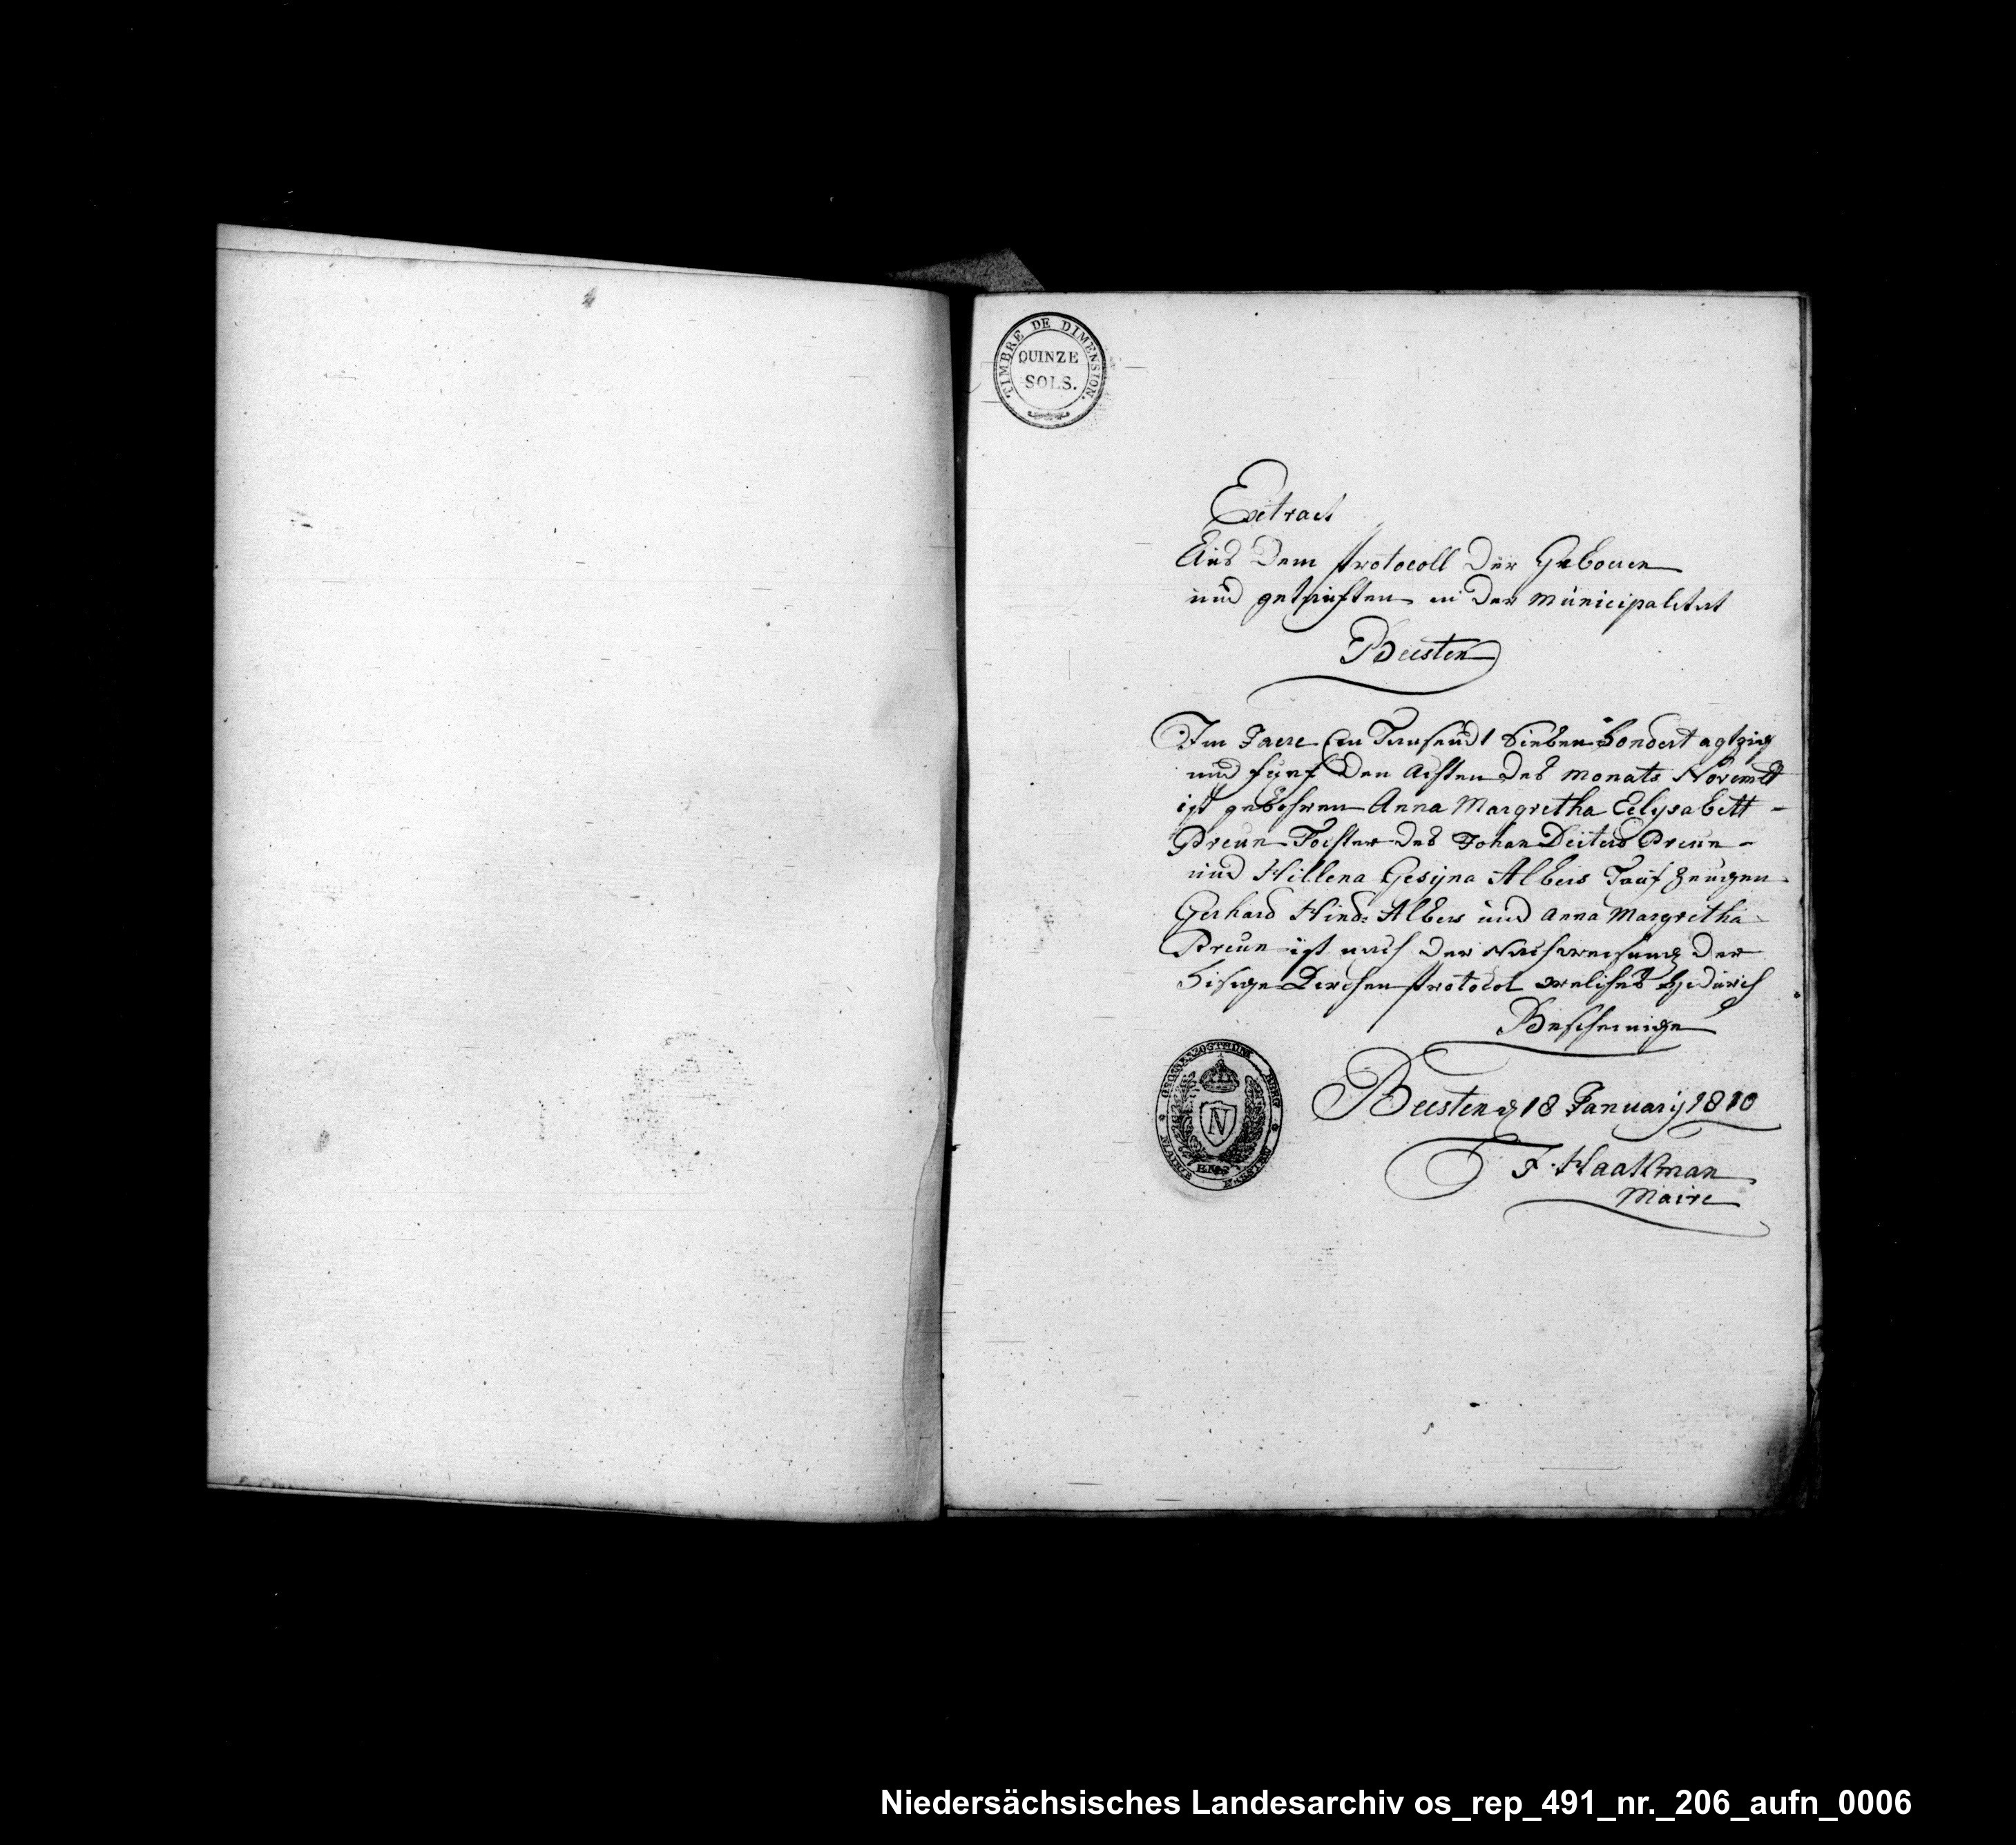 TIMBRE DE DIMENSION.
QUINZE
SOLS.
Extract
Aus Dem Protocoll Der Geboren
und getauften in Der Municipalitat
Beesten
Im Jaere Ein Tausendt Sieben Hondert agtzig
und fünf Den Achten Des monats Novembr
ist gebohren Anna Margretha Eelysabett
Dreun Tochter Des Johan Deiterd Dreun
und Hillena Gesyna Albers Tauf Zeugen
Gerhard Hind: Albers und Anna Margretha
Dreun ist nach Der Nachweisung Der
hisige Kerchen Protocol welches hidurch
Bescheinige
GROSHERZOGTHUM BERG
MAIRIE BEESTEN
N
EMS
Beesten d 18 January 1810
F. Haakman
Maire
Niedersächsisches Landesarchiv os_rep_491_nr._206_aufn_0006